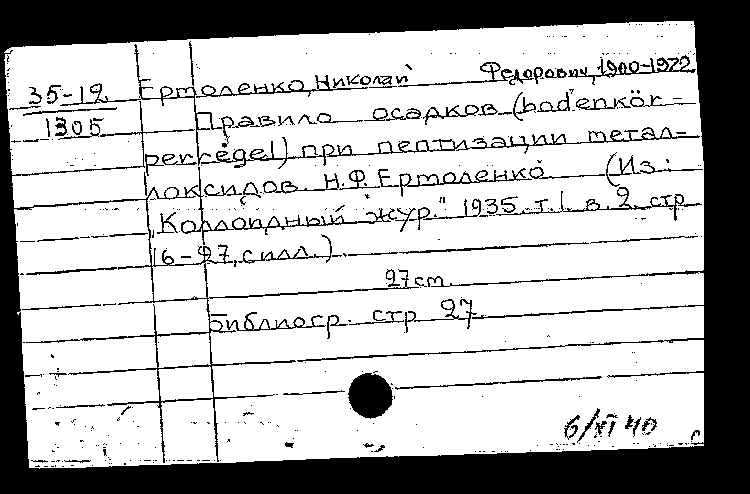 35-19 Ермоленко, Николай Федорович, 1900-1972
1305 Правило осадков (bodenkör-
perregel) при пептизации метал-
локсидов. Н.Ф. Ермоленко. (Из:
"Коллоидный жур." 1935. т.1. в.2. стр
16-27, с илл.).
27 cm.
Библиогр. стр 27.
6/XI 40